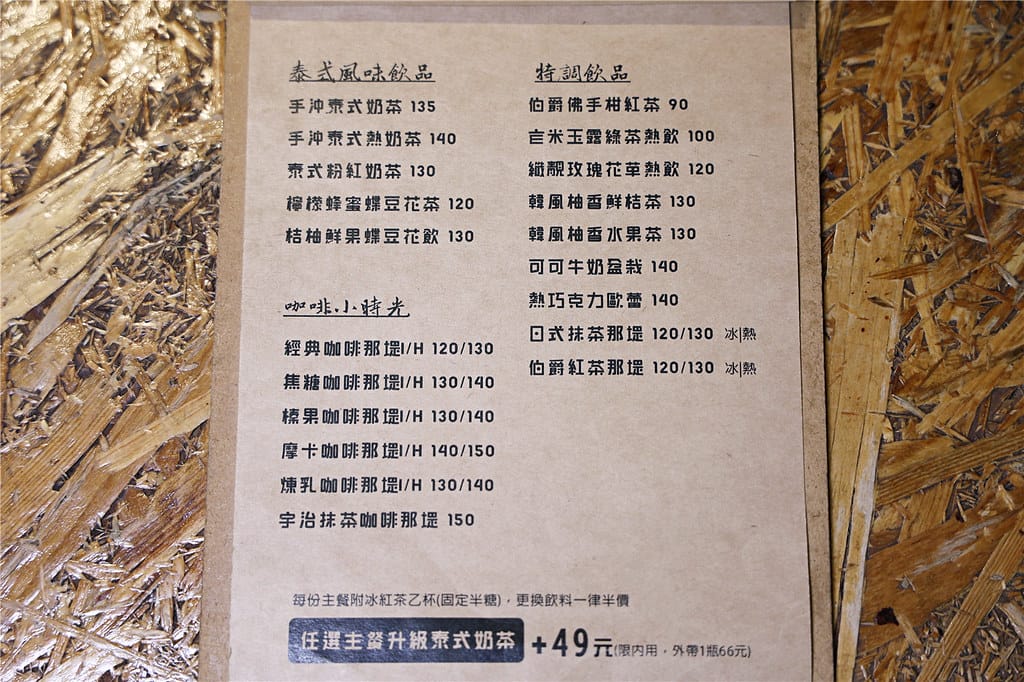 泰式風味飲品
手沖泰式奶茶 135
手沖泰式熱奶茶 140
泰式粉紅奶茶 130
檸檬蜂蜜蝶豆花茶 120
桔柚鮮果蝶豆花飲 130
咖啡小時光
經典咖啡那堤I/H 120/130
焦糖咖啡那堤I/H 130/140
榛果咖啡那堤I/H 130/140
摩卡咖啡那堤I/H 140/150
煉乳咖啡那堤I/H 130/140
宇治抹茶咖啡那堤 150
特調飲品
伯爵佛手柑紅茶 90
玄米玉露綠茶熱飲 100
纖靚玫瑰花草熱飲 120
韓風柚香鮮桔茶 130
韓風柚香水果茶 130
可可牛奶盆栽 140
熱巧克力歐蕾 140
日式抹茶那堤 120/130 冰|熱
伯爵紅茶那堤 120/130 冰|熱
每份主餐附冰紅茶乙杯(固定半糖)，更換飲料一律半價
任選主餐升級泰式奶茶 +49元(限內用，外帶1瓶66元)